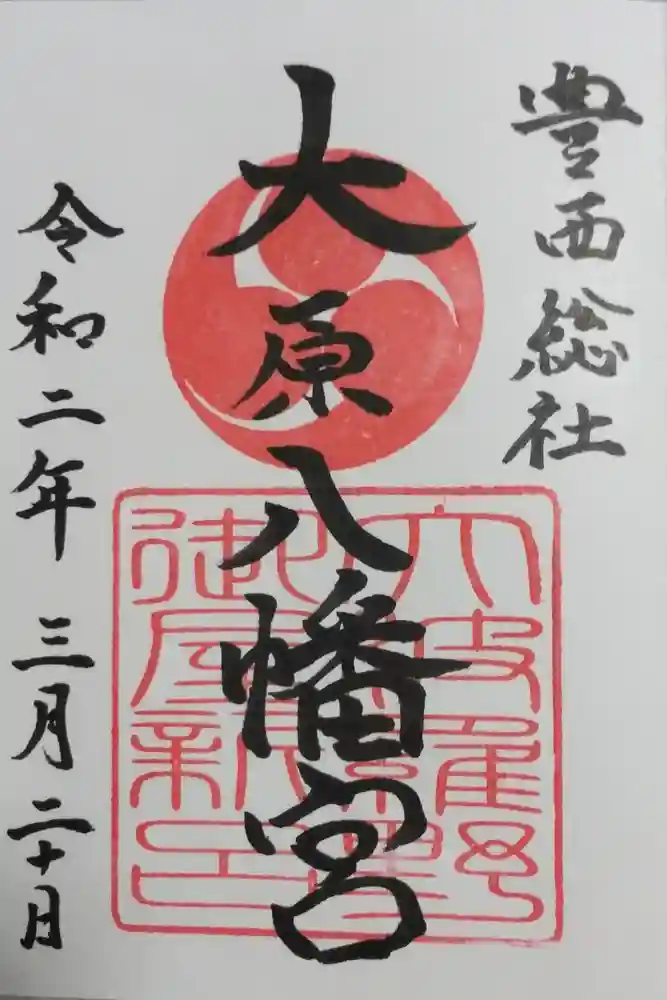 豊西総社
大原八幡宮
令和二年 三月二十日